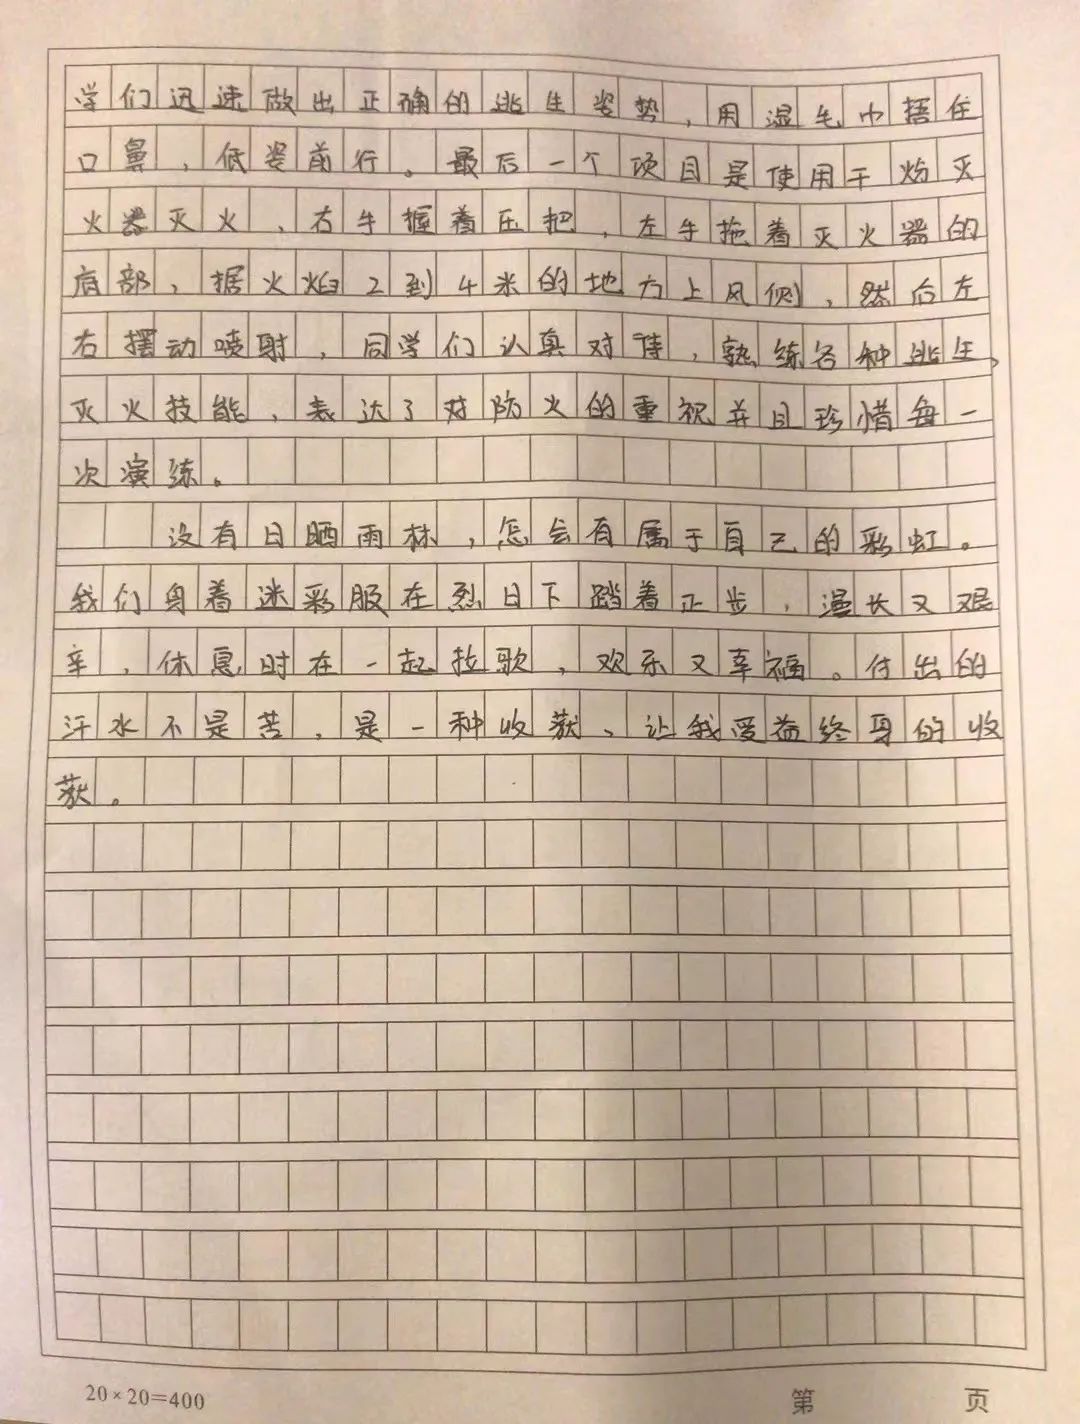 学们迅速做出正确的逃生姿势,用湿毛巾捂住
口鼻,低姿前行。最后一个项目是使用干粉灭
火器灭火,右手握着压把,左手拖着灭火器的
底部,据火焰2到4米的地方上风侧,然后左
右摆动喷射,同学们认真对待,熟练各种逃生、
灭火技能,表达了对防火的重视并且珍惜每一
次演练。
没有日晒雨林,怎会有属于自己的彩虹。
我们身着迷彩服在烈日下踏着正步,漫长又艰
辛,休息时在一起拉歌,欢乐又幸福。付出的
汗水不是苦,是一种收获、让我受益终身的收
获。
20×20=400
第 页